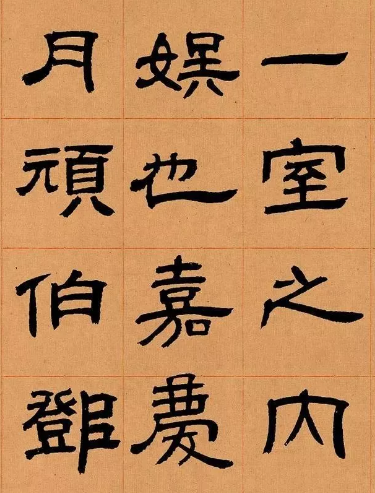 一室之内
娱也嘉慶
月頑伯鄧